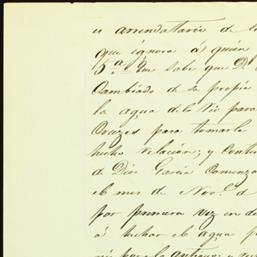 u arrendatario de l
que ignora á quien
5ª. Que sabe que D.
Cambiado de su propia
la agua del rio para
Cruzes para tomarla
hecho relacion; y Contes
de Dios Garcia Comenzó
el mes de Nov.e d
por primera vez en de
á echar el agua p